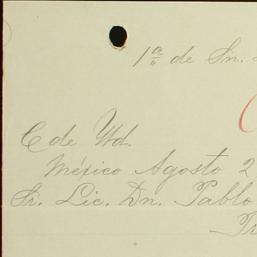 1ª de Sn.
C de Ud.
México Agosto 2
Sr. Lic. Dn. Pablo